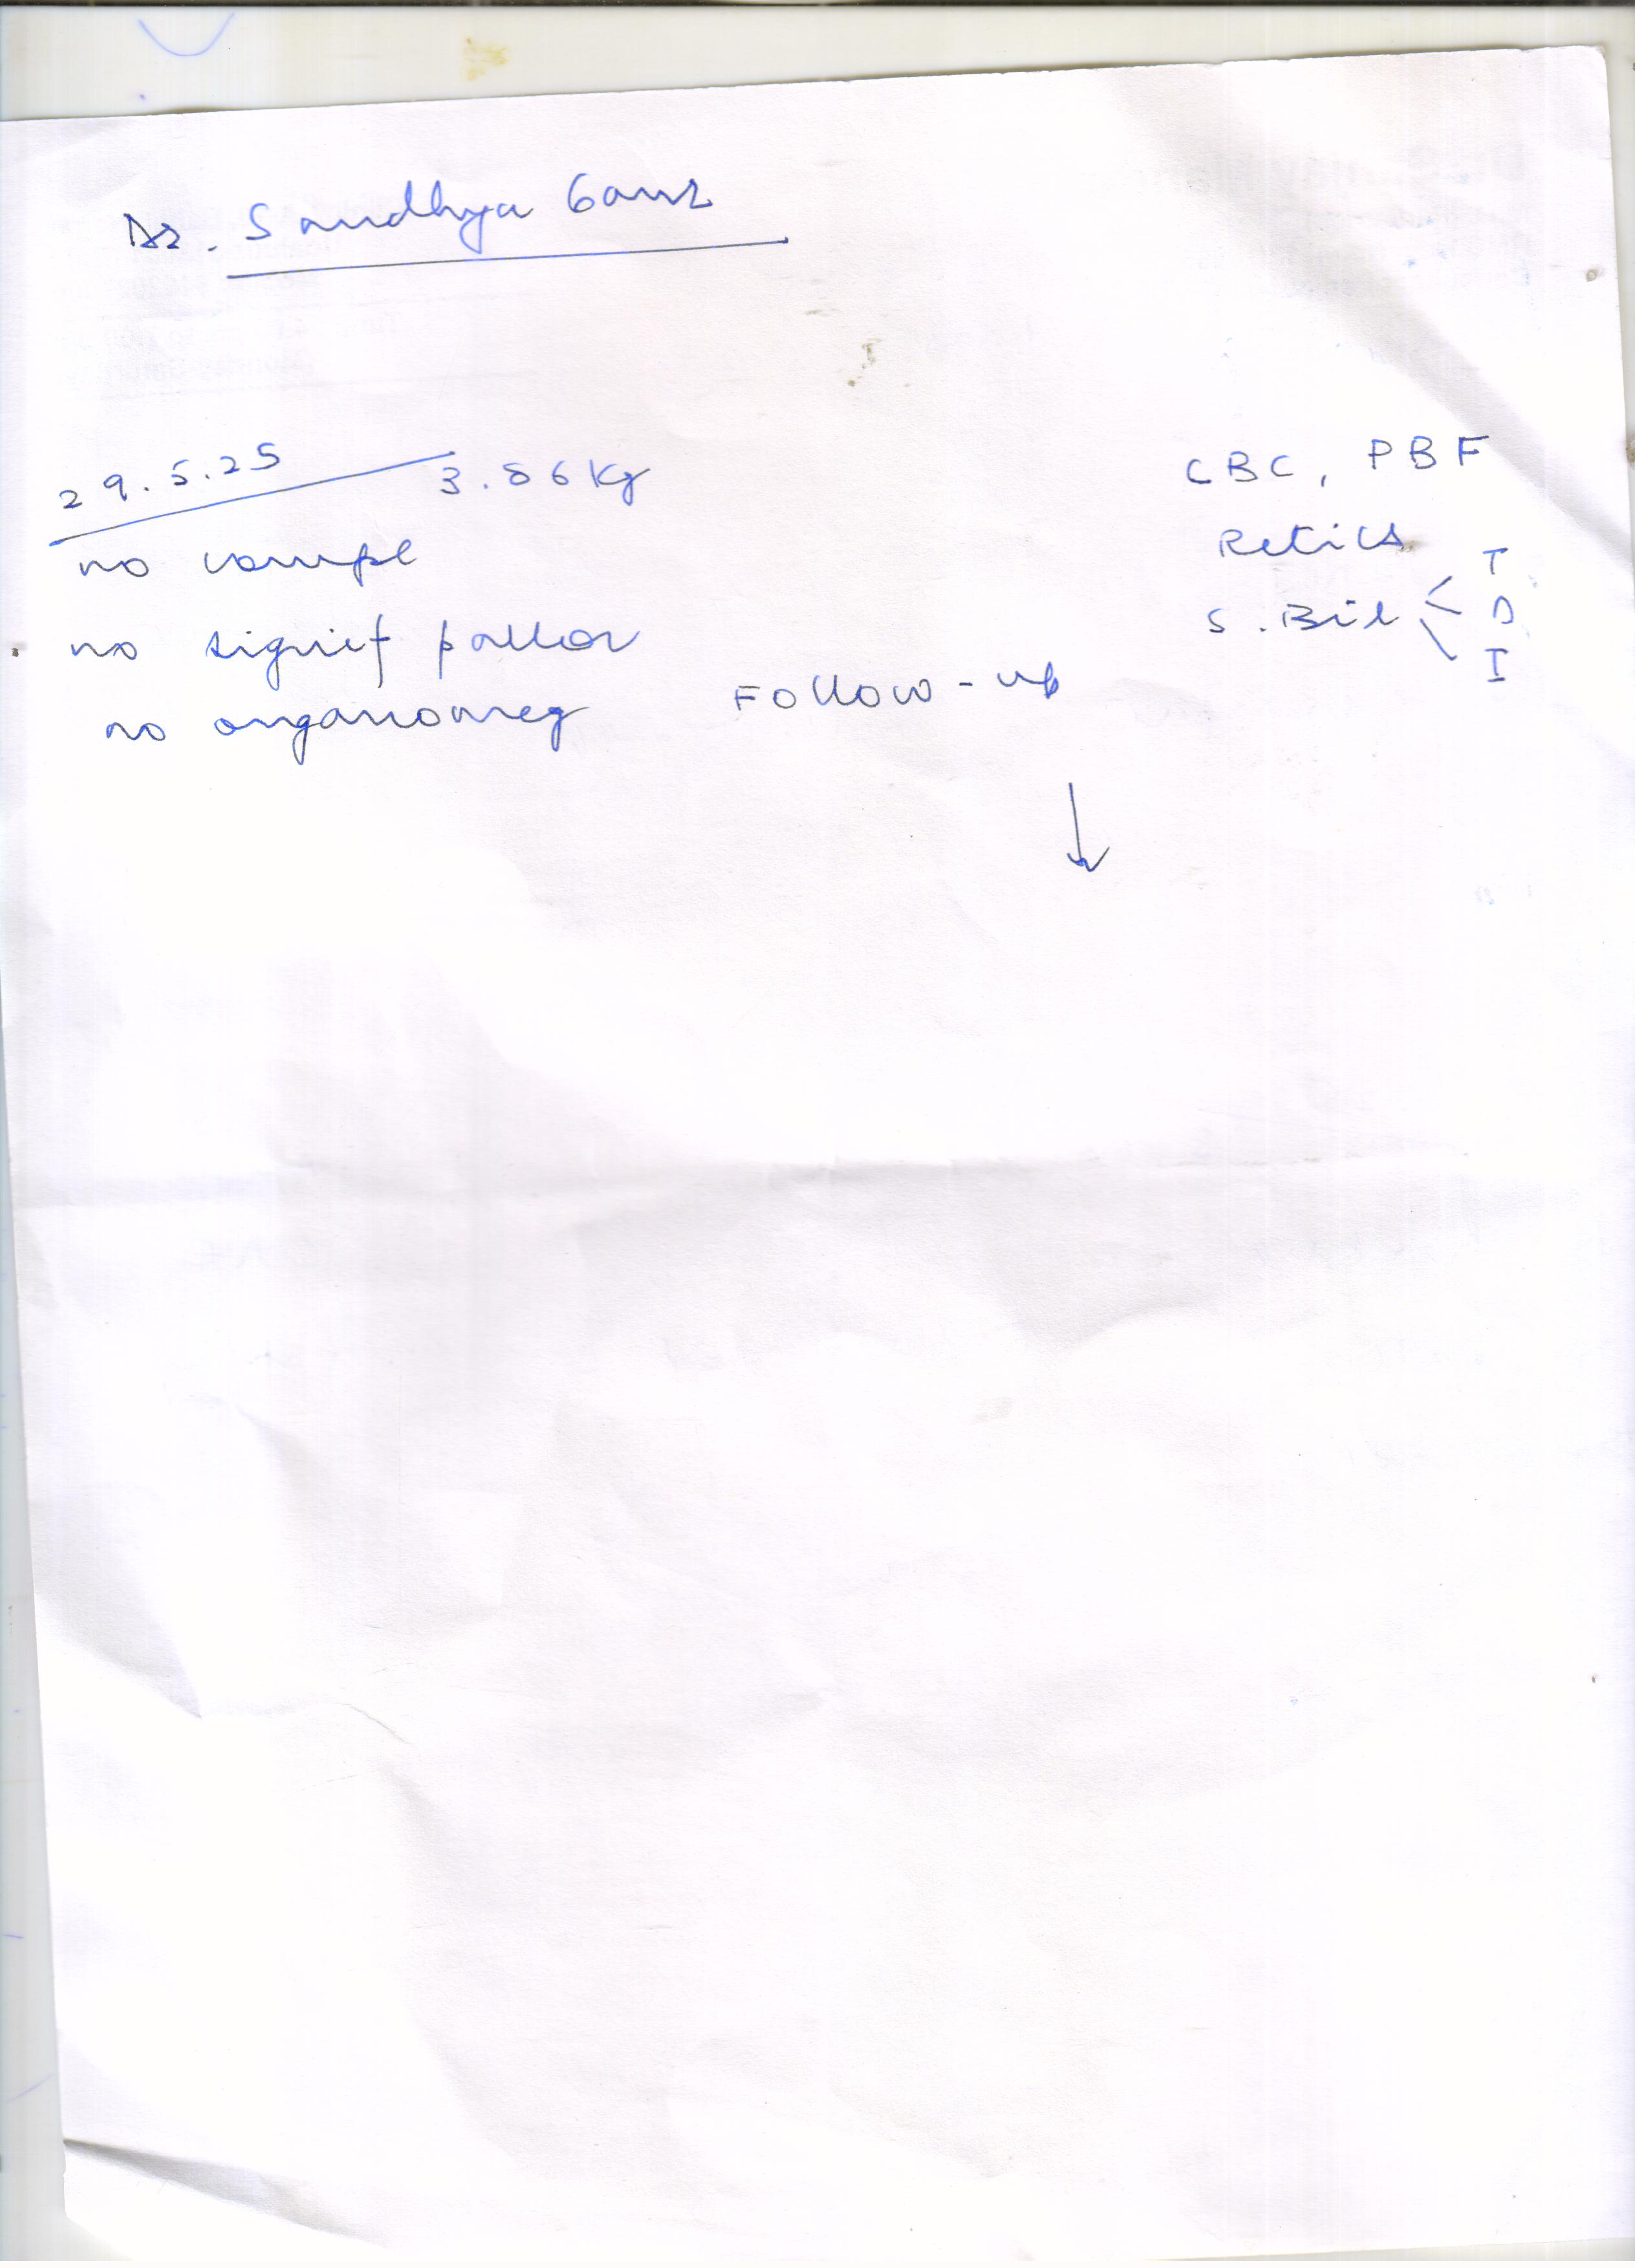 Dr. Sandhya Gaur
29.5.25 3.86 Kg
no compl
no signif pallor
no organomeg
Follow-up
↓
CBC, PBF
Retics
S. Bil < T
D
I